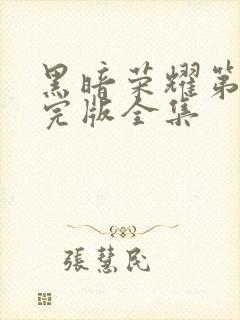 黑暗荣耀第
完版全集
張慧民